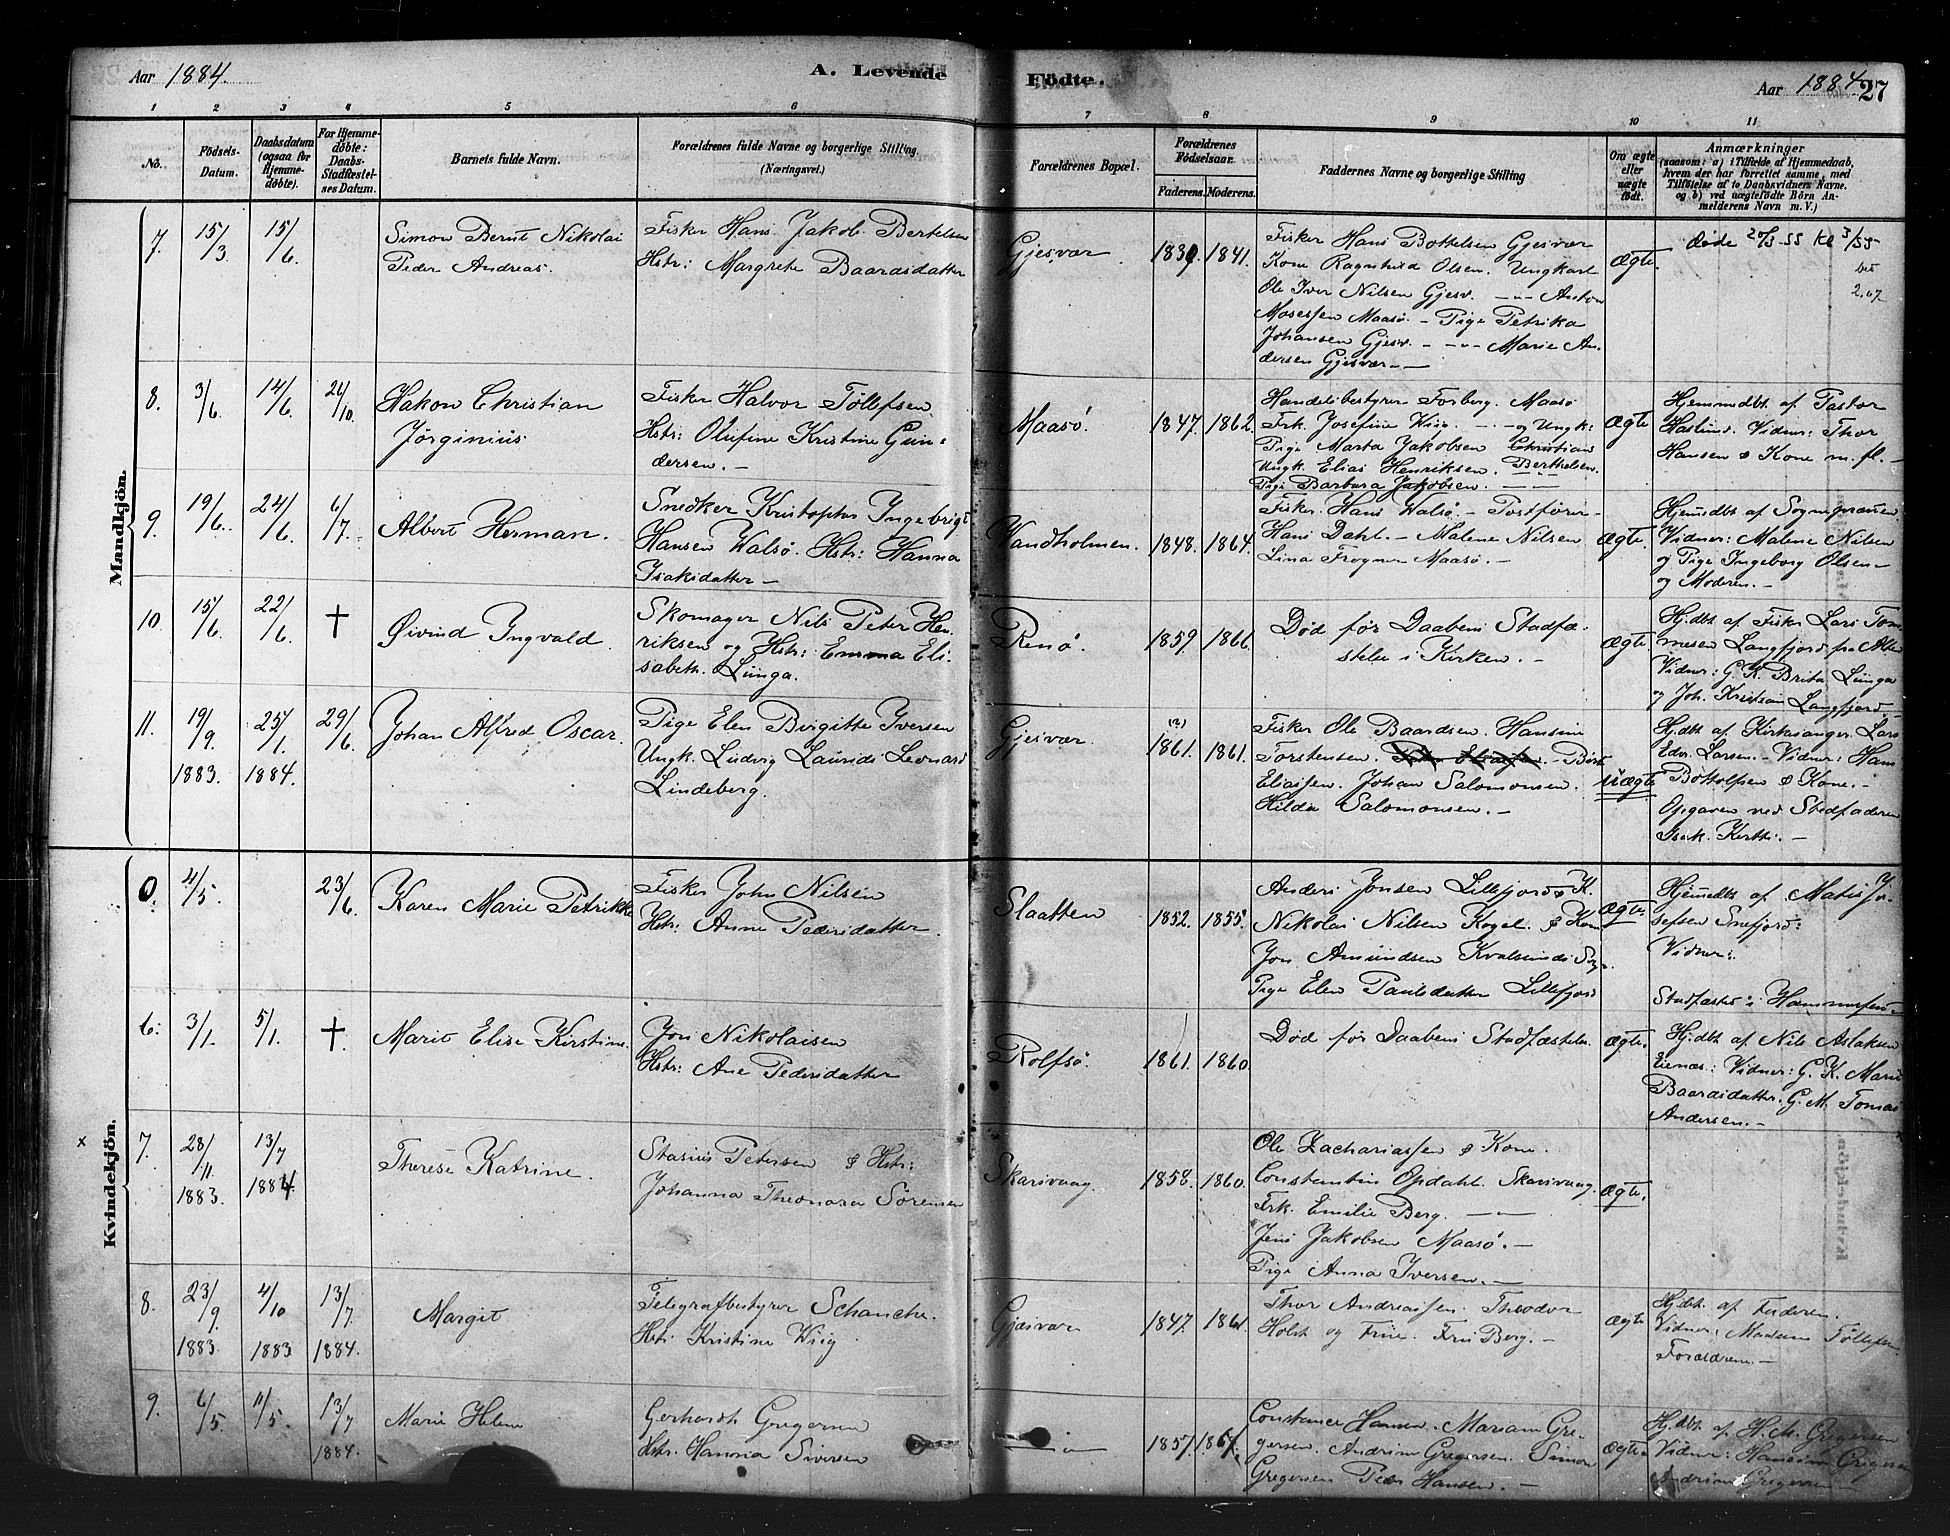 Aar 1884.
A. Levende Födte.
Aar 1884 27
1 2 3 4 5 6 7 8 9 10 11
No.
Födsels-Datum.
Daabsdatum (ogsaa for Hjemmedøbte).
For Hjemmedøbte: Daabs-Stadfæstelses Datum.
Barnets fulde Navn.
Forældrenes fulde Navne og borgerlige Stilling. (Næringsvei.)
Forældrenes Bopæl.
Forældrenes Födselsaar.
Faderens. Moderens.
Faddernes Navne og borgerlige Stilling
Om ægte eller uægte födt.
Anmærkninger
(saasom: a) i Tilfælde af Hjemmedaab, hvem der har forrettet samme, med Tilföielse af to Daabsvidners Navne. og b) ved uægtefödte Börn Anmelderens Navn m. V.)
Mandkjön.
7. 15/3 15/6
Simon Bernt Nikolai
Peder Andreas.
Fisker Hans Jakob Bertelsen
Hstr: Margrete Baardsdatter
Gjesvær. 1839. 1841.
Fisker Hans Bottelsen Gjesvær
Kone Ragnhild Olsen. Ungkarl
Ole Iver Nilsen Gjesv. — Anton
Mosessen Maasö. — Pige Petrika
Johansen Gjesv. — Marie An-
dersen Gjesvær —
Ægte.
døde
8. 3/6 14/6 26/10
Hakon Christian
Jörginius
Fisker Halvor Töllefsen
Hstr: Olufine Kristine Gun-
dersen. —
Maasö. 1847. 1862.
Handelsbestyrer Forberg. Maasö
Frk. Josefine Wiig. — og Ungk:
Pige Marta Jakobsen Christian
Ungk. Elias Henriksen. Berthelsen.
Pige Barbara Jakobsen —
Ægte
Hjemmedbt. af Pastor
Haslund. Vidner: Thor
Hansen & Kone m. fl. —
9. 19/6. 24/6 6/7.
Albert Herman.
Snedker Kristopher Ingebrigt
Hansen Walsö. Hstr: Hanna
Isaksdatter —
Vandholmen. 1848. 1864.
Fisker. Hans Walsö — Postförer
Hans Dahl. — Malene Nilsen
Lina Frogner Maasö. —
Ægte.
Hjemdbt af Sognepræsten
Vidner: Malene Nilsen
og Pige Ingeborg Olsen —
og Moderen. —
10. 15/6 22/6 †
Øivind Ingvald.
Skomager Nils Peter Hen-
riksen og Hstr: Emma Eli-
sabeth. Liinga.
Renö. 1859. 1866.
Død før Daabens Stadfæ-
stelse i Kirken. —
Ægte
Hj.dbt af Fisker Lars Tom-
mesen Langfjord fra Alten
Vidner: G. K. Brita Liinga
og Joh. Kristian Langfjord
11. 19/9 1883. 25/1. 1884. 29/6
Johan Alfred Oscar.
Pige Elen Birgitte Iversen
Ungk. Ludvig Laurids Leonard
Lindeberg.
Gjesvær (?) 1861. 1861.
Fisker Ole Baardsen. Hansine
Torstensen. Berit
Eliassen. Johan Salomonsen.
Hilda Salomonsen. —
Uægte
Hj.dbt af Kirkesanger Lars
Edv. Larsen. — Vidner: Hans
Bottolfsen & Kone. —
Opgaven ved Stedfaderen
Isak. Kertti. —
Kvindekjön.
0. 4/5. 23/6
Karen Marie Petrikke
Fisker John Nilsen
Hstr: Anne Pedersdatter.
Slaatten 1852. 1855.
Anders Jonsen Lillefjord & K.
Nikolai Nilsen Kogel. & Kone
Jon Amundsen Kvalsund
Pige Elen Paulsdatter Lillefjord
Ægte.
Hjemdbt af Matis Jo-
sefsen Snefjord:
Vidner:
Stadfæstet i Hammerfest
6: 3/1. 5/1. †.
Marit Elise Kirstine.
Jon Nikolaisen
Hstr: Ane Pedersdatter
Rolfsö. 1861. 1860.
Død før Daabens Stadfæstelse
Ægte.
Hj.dbt af Nils Aslaksen
Eienæs: Vidner: G. K. Marie
Baardsdatter. G. M. Tomas
Andersen. —
x 7. 28/11. 1883. 13/7 1884.
Therese Katrine.
Stasius Petersen & Hstr:
Johanna Theonora Sörensen
Skarsvaag. 1858. 1860.
Ole Zachariassen & Kone.
Constantin Opdahl. Skarsvaag.
Frk. Emilie Berg. —
Jens Jakobsen Maasö. —
Pige Anna Iversen. —
Ægte.
8. 23/9 1883. 4/10 1883 13/7 1884.
Margit
Telegrafbestyrer Schanche.
Hstr: Kristine Wiig
Gjesvær 1847. 1861.
Thor Andreassen. Theodor
Holst og Frue. Fru Berg. —
Ægte
Hj.dbt. af Faderen.
Vidner: Madam Töllefsen
Forældrene. —
9. 6/5 11/5. 13/7 1884.
Marie Helene
Gerhardt Gregersen
Hstr. Hanna Siversen
1857. 1867.
Constance Hansen. Mariam Gre-
gersen. Andrine Gregersen. Simon
Gregersen Peder Hansen. —
Ægte.
Hj.dbt af H. M. Gregersen
Vidner: Hansine Gregersen
Andrine Gregersen —